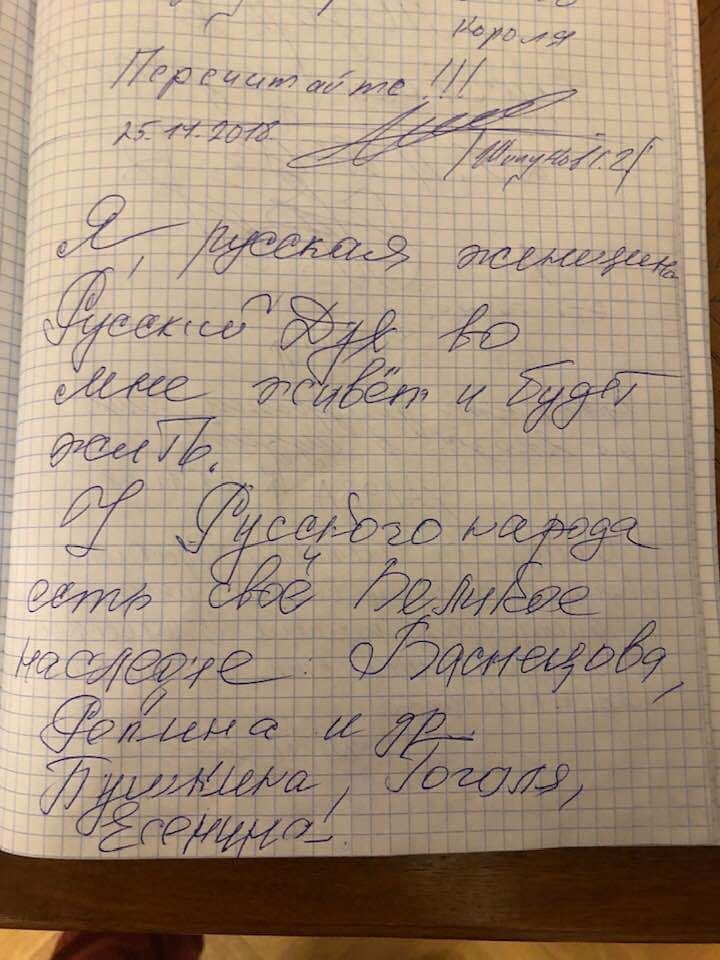 Короля
Пересчитайте !!!
25.11.2018
Я, русская женщина
Русский Дух во
мне живёт и будет
жить.
У Русского народа
есть своё Великое
наследие: Васнецова,
Репина и др
Пушкина, Гоголя,
Есенина!